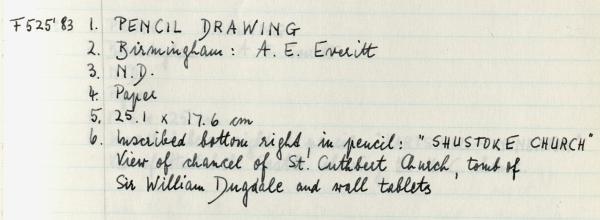 F525'83 1. PENCIL DRAWING
2. Birmingham: A. E. Everitt
3. N.D.
4. Paper
5. 25.1 x 17.6 cm
6. Inscribed bottom right, in pencil: "SHUSTOKE CHURCH"
View of chancel of St. Cuthbert Church, tomb of
Sir William Dugdale and wall tablets